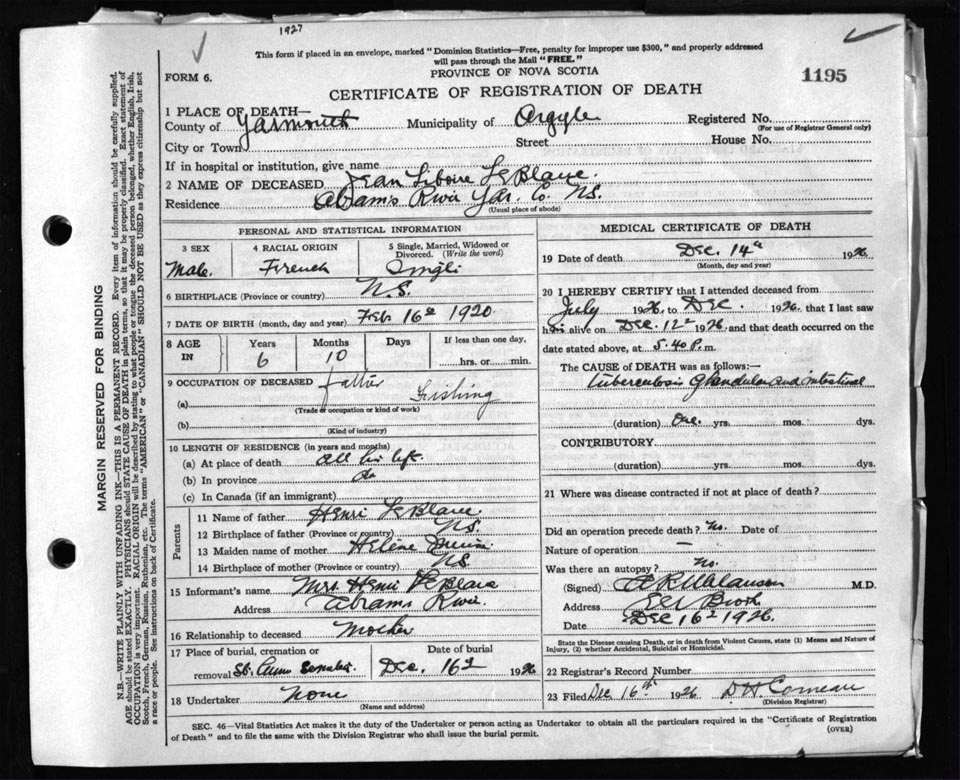 1927
This form if placed in an envelope, marked "Dominion Statistics—Free, penalty for improper use $300," and properly addressed
will pass through the Mail "FREE."
FORM 6.
PROVINCE OF NOVA SCOTIA
1195
CERTIFICATE OF REGISTRATION OF DEATH
1 PLACE OF DEATH—
County of Yarmouth Municipality of Argyle Registered No.
(For use of Registrar General only)
City or Town Street House No.
If in hospital or institution, give name
2 NAME OF DECEASED Jean LeBlanc
Residence Abrams River Yar. Co. N.S.
(Usual place of abode)
PERSONAL AND STATISTICAL INFORMATION
3 SEX 4 RACIAL ORIGIN 5 Single, Married, Widowed or
Divorced. (Write the word)
Male. French Single
6 BIRTHPLACE (Province or country) N.S.
7 DATE OF BIRTH (month, day and year) Feb 16 1920
8 AGE IN Years Months Days If less than one day,
6 10 hrs. or min.
9 OCCUPATION OF DECEASED father
(a) Fishing
(Trade or occupation or kind of work)
(b)
(Kind of industry)
10 LENGTH OF RESIDENCE (in years and months)
(a) At place of death all his life
(b) In province do
(c) In Canada (if an immigrant)
Parents
11 Name of father Henri LeBlanc
12 Birthplace of father (Province or country) N.S.
13 Maiden name of mother Helene
14 Birthplace of mother (Province or country) N.S.
15 Informant's name Mrs. Henri LeBlanc
Address Abrams River
16 Relationship to deceased Mother
17 Place of burial, cremation or Date of burial
removal St. Dec. 16 1926
18 Undertaker None
(Name and address)
MEDICAL CERTIFICATE OF DEATH
19 Date of death Dec. 14 1926
(Month, day and year)
20 I HEREBY CERTIFY that I attended deceased from
July 1926, to Dec. 1926, that I last saw
him alive on Dec. 12 1926 and that death occurred on the
date stated above, at 5.40 P.m.
The CAUSE of DEATH was as follows:—
Tuberculosis Glandular and intestinal
(duration) One yrs. mos. dys.
CONTRIBUTORY
(duration) yrs. mos. dys.
21 Where was disease contracted if not at place of death?
Did an operation precede death? No. Date of
Nature of operation —
Was there an autopsy? No.
(Signed) M.D.
Address Brook
Date Dec 16 1926.
State the Disease causing Death, or in death from Violent Causes, state (1) Means and Nature of
Injury, (2) whether Accidental, Suicidal or Homicidal.
22 Registrar's Record Number
23 Filed Dec 16th 1926 D H Comeau
(Division Registrar)
SEC. 46—Vital Statistics Act makes it the duty of the Undertaker or person acting as Undertaker to obtain all the particulars required in the "Certificate of Registration
of Death" and to file the same with the Division Registrar who shall issue the burial permit.
(OVER)
MARGIN RESERVED FOR BINDING
N.B.—WRITE PLAINLY WITH UNFADING INK—THIS IS A PERMANENT RECORD. Every item of information should be carefully supplied.
AGE should be stated EXACTLY. PHYSICIANS should STATE CAUSE OF DEATH in plain terms, so that it may be properly classified. Exact statement of
OCCUPATION is very important. RACIAL ORIGIN will be described by stating to what people or tongue the deceased person belonged, whether English, Irish,
Scotch, French, German, Russian, Ruthenian, etc. The terms "AMERICAN" or "CANADIAN" SHOULD NOT BE USED as they express citizenship but not
a race or people. See instructions on back of Certificate.